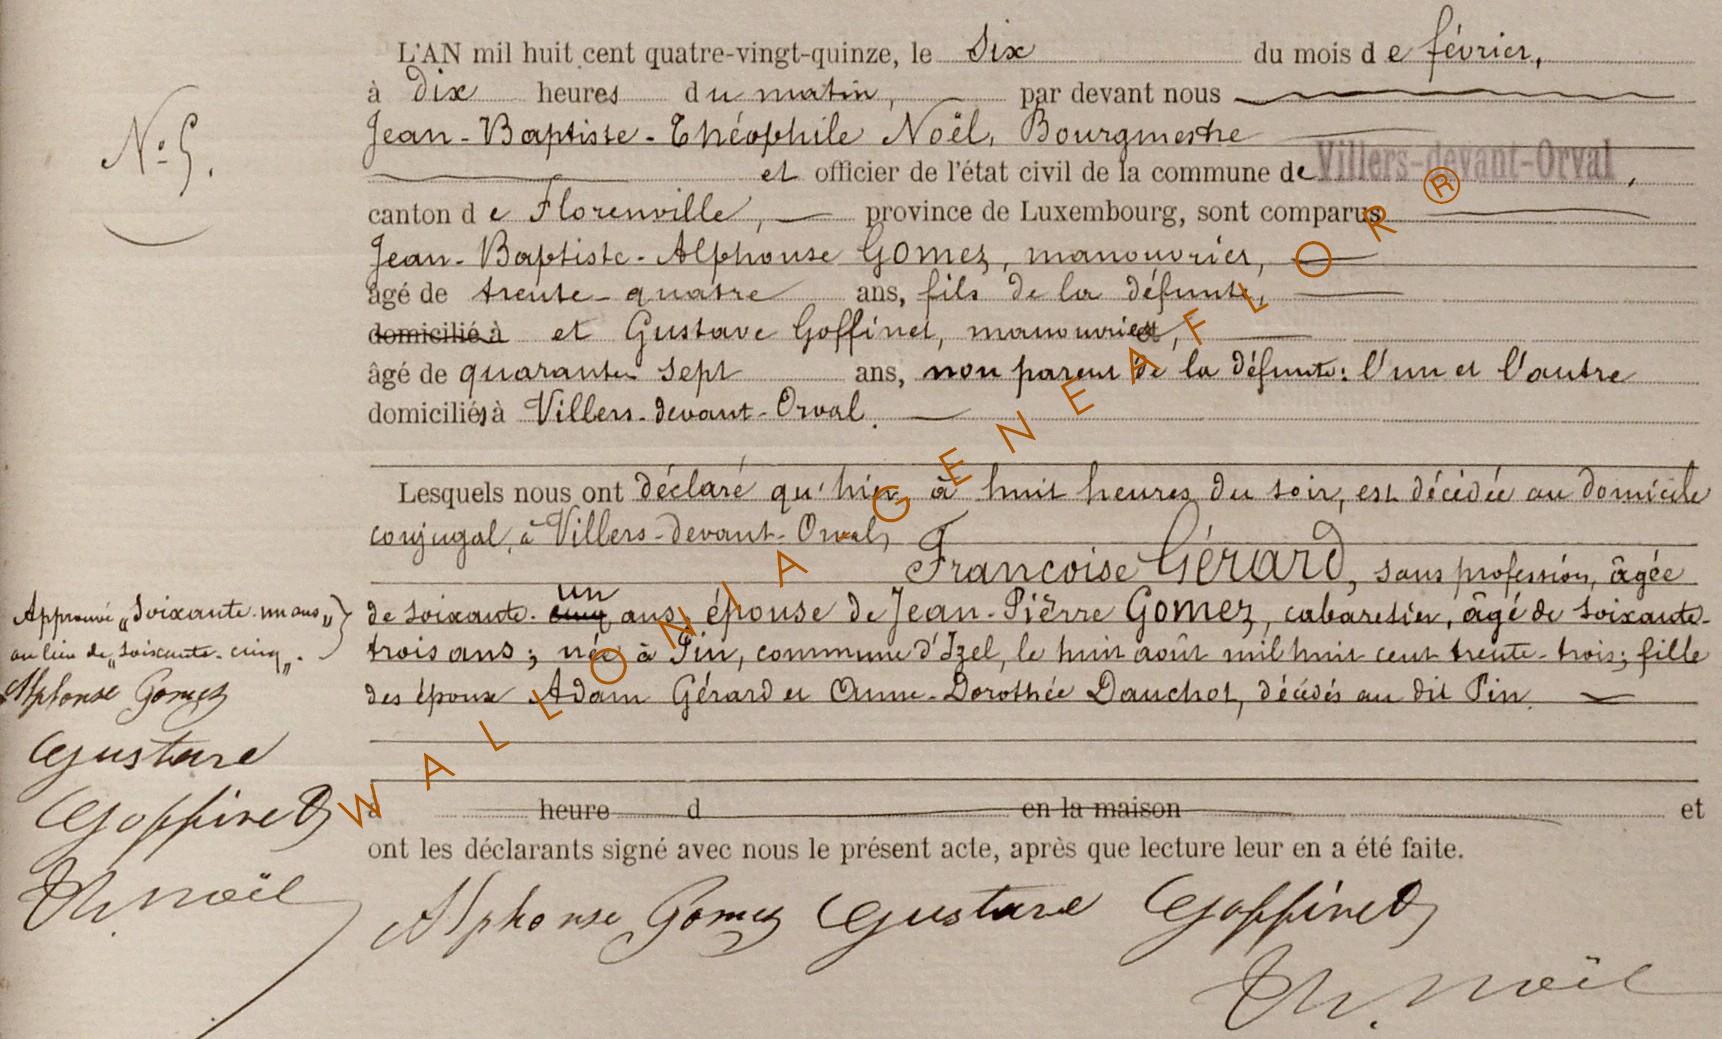 L'AN mil huit cent quatre-vingt-quinze, le six du mois de février,
à dix heures du matin, par devant nous
N° 5.
Jean-Baptiste-Théophile Noël, Bourgmestre
et officier de l'état civil de la commune de Villers-devant-Orval,
canton de Florenville, province de Luxembourg, sont comparus
Jean-Baptiste-Alphonse Gomez, manouvrier,
âgé de trente-quatre ans, fils de la défunte,
domicilié à et Gustave Goffinet, manouvrier,
âgé de quarante sept ans, non parent de la défunte: l'un et l'autre
domiciliés à Villers-devant-Orval.
Lesquels nous ont déclaré qu'hier à huit heures du soir, est décédée au domicile
conjugal, à Villers-devant-Orval,
Francoise Gérard, sans profession, âgée
un
de soixante-cinq ans, épouse de Jean-Pierre Gomez, cabaretier, âgé de soixante-
trois ans; née à Pin, commune d'Izel, le huit août mil huit cent trente-trois; fille
des époux Adam Gérard et Anne-Dorothée Dauchot, décédés au dit Pin.
Approuvé „soixante-un ans„
au lieu de „soixante-cinq„.
Alphonse Gomez
Gustave
Goffinet
Th. Noël
à heure d en la maison et
ont les déclarants signé avec nous le présent acte, après que lecture leur en a été faite.
Alphonse Gomez Gustave Goffinet
Th. Noël
WALLONIA GENEAFLOR®